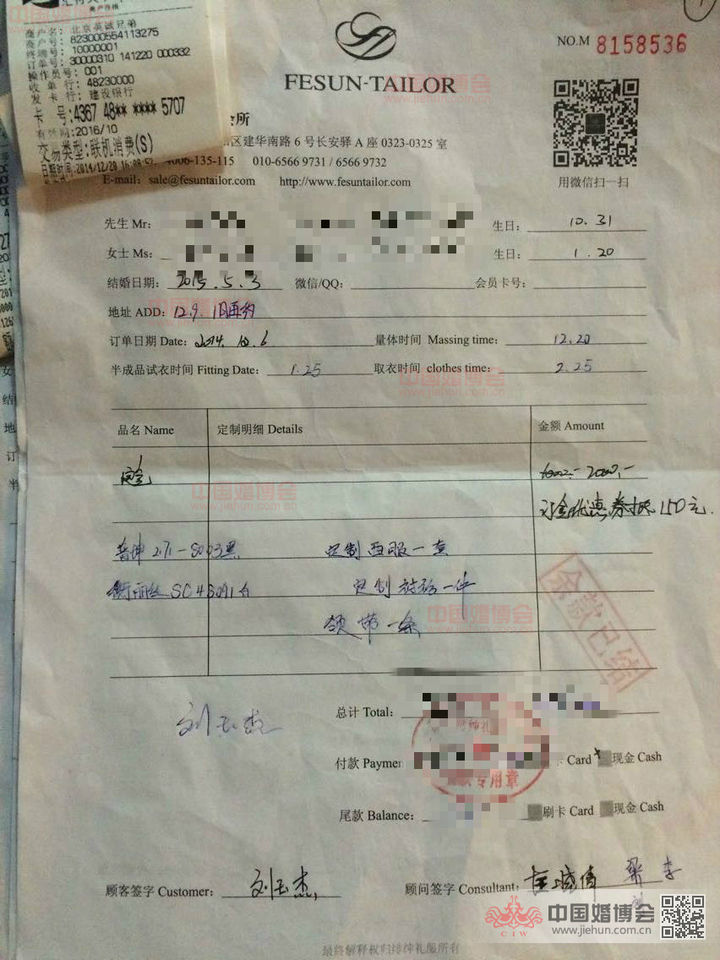 商户存根
商户名: 北京英诚兄弟
商户号: 823000554113275
终端号: 10000001
订单号: 30000310 141220 000332
操作员号: 001
收 单 行: 48230000
发 卡 行: 建设银行
卡 号: 4367 48** **** 5707
有效期: 2016/10
交易类型: 联机消费(S)
FESUN·TAILOR
NO.M 8158536
区建华南路 6 号长安驿 A 座 0323-0325 室
4006-135-115 010-6566 9731 / 6566 9732
E-mail: sale@fesuntailor.com http://www.fesuntailor.com
用微信扫一扫
先生 Mr: 生日: 10.31
女士 Ms: 生日: 1.20
结婚日期: 2015.5.3 微信/QQ: 会员卡号:
地址 ADD: 12.9.
订单日期 Date: 2014.12.6 量体时间 Massing time: 12.20
半成品试衣时间 Fitting Date: 1.25 取衣时间 clothes time: 2.25
品名 Name 定制明细 Details 金额 Amount
定金 2000.-
优惠券抵 150元.
定制西服一套
定制衬衫一件
领带一条
余款已结
总计 Total:
刘玉杰
付款 Paymen 卡 Card + 现金 Cash
专用章
尾款 Balance: 刷卡 Card 现金 Cash
顾客签字 Customer: 刘玉杰 顾问签字 Consultant:
最终解释权归 礼服所有
中国婚博会
www.jiehun.com.cn
CIW